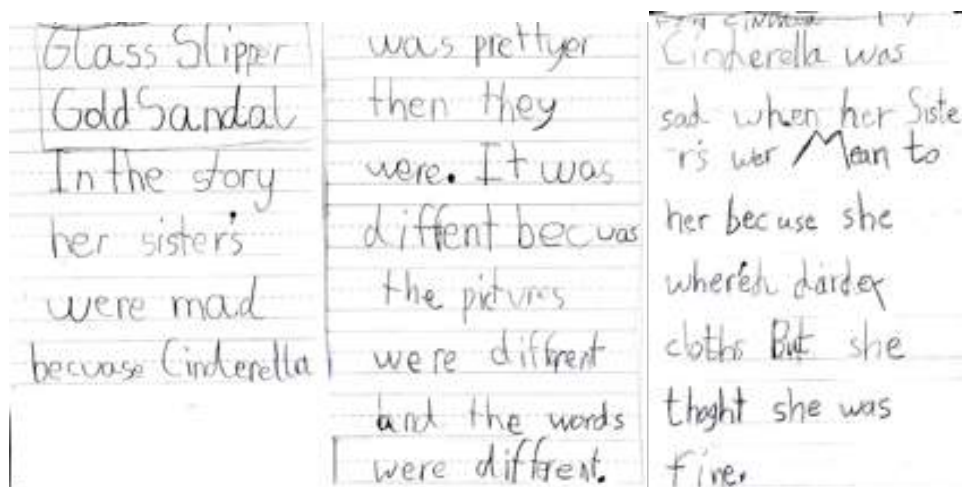 Glass Slipper
Gold Sandal
In the story
her sister's
were mad
becuase Cinderella
was prettyer
then they
were. It was
diffent becuas
the pictures
were diffrent
and the words
were diffrent.
Cinderella was
sad when her Siste
r's wer Mean to
her becuse she
cloths But she
thoght she was
fine.